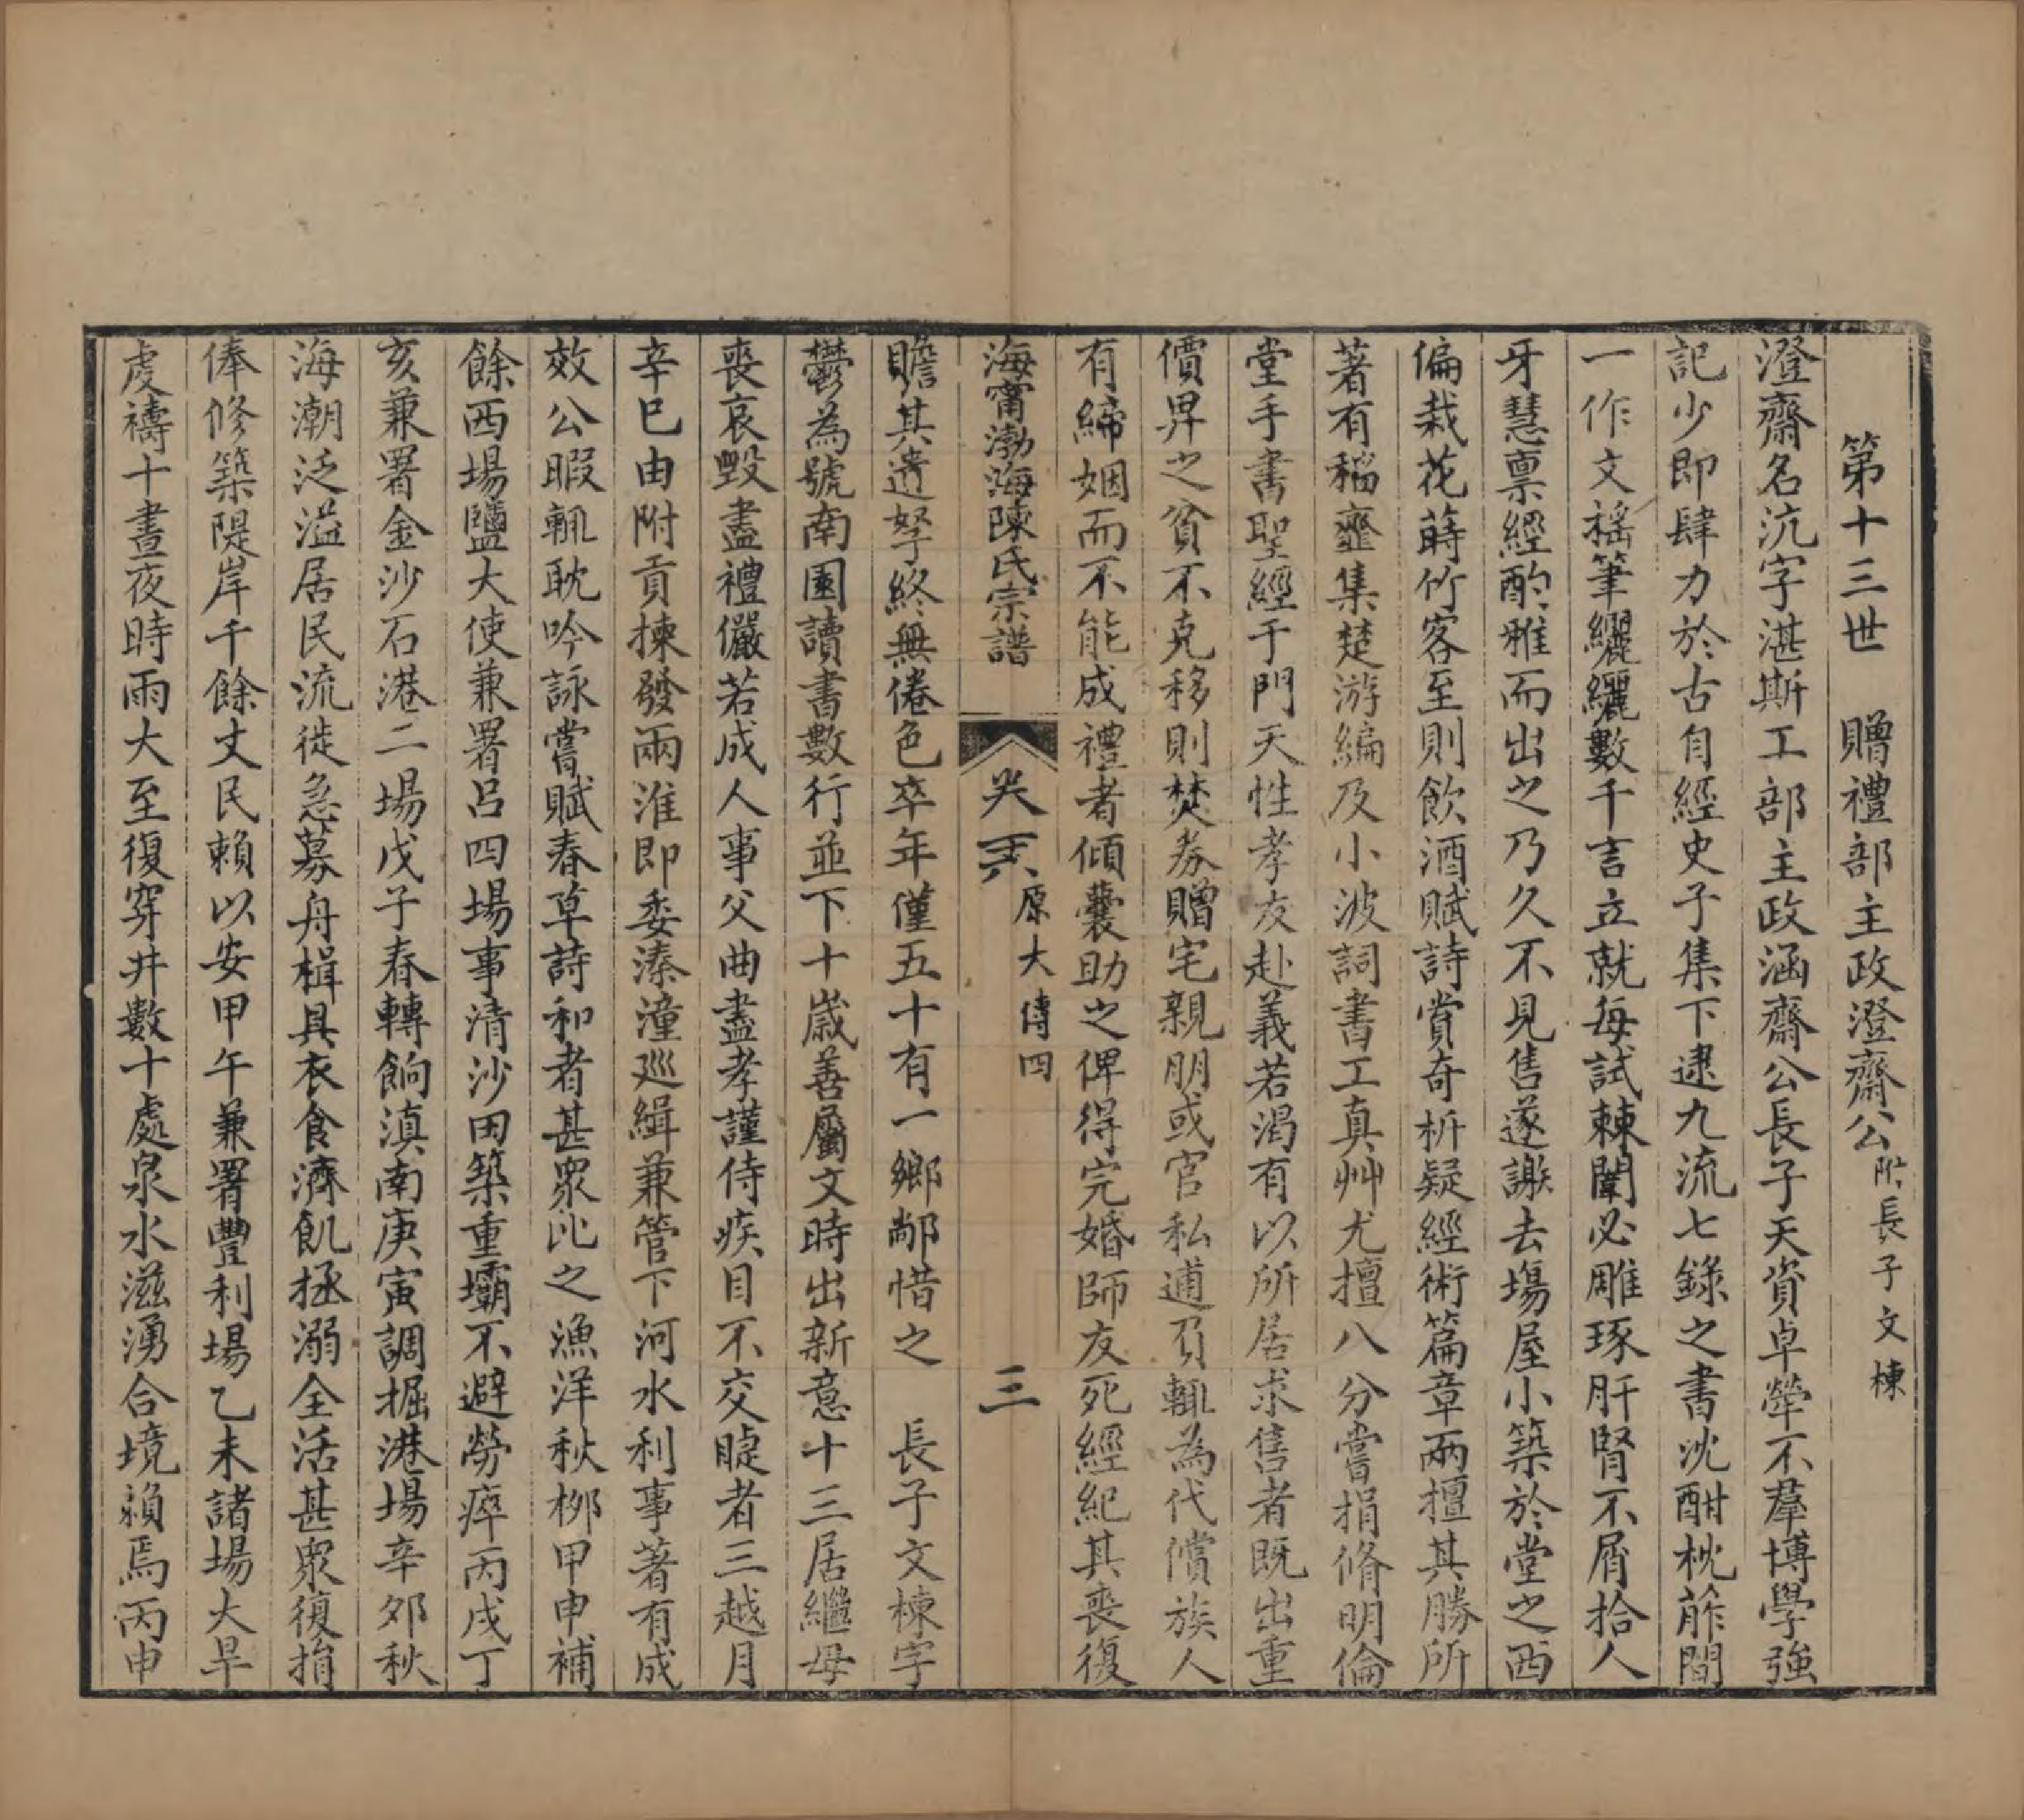 第十三世　贈禮部主政澄齋公附長子文棟
澄齋名沆字湛斯工部主政涵齋公長子天資卓犖不羣博學強
記少即肆力於古自經史子集下逮九流七錄之書沈酣枕葄間
一作文搖筆纚纚數千言立就每試棘闈必雕琢肝腎不屑拾人
牙慧禀經酌雅而出之乃久不見售遂謝去塲屋小築於堂之西
偏栽花蒔竹客至則飲酒賦詩賞奇析疑經術篇章兩擅其勝所
著有稻韲集楚游編及小波詞書工真艸尤擅八分嘗捐脩明倫
堂手書聖經于門天性孝友赴義若渴有以所居求售者既出重
價畀之貧不克移則焚券贈宅親朋或官私逋負輒為代償族人
有締姻而不能成禮者傾囊助之俾得完婚師友死經紀其喪復
海甯渤海陳氏宗譜
原大傳四
三
贍其遺孥終無倦色卒年僅五十有一鄉鄰惜之　長子文棟宇
鬱為號南園讀書數行並下十歲善屬文時出新意十三居繼母
喪哀毀盡禮儼若成人事父曲盡孝謹侍疾目不交睫者三越月
辛巳由附貢揀發兩淮即委溱潼巡緝兼管下河水利事著有成
效公暇輒耽吟詠嘗賦春草詩和者甚衆比之漁洋秋栁甲申補
餘西場鹽大使兼署呂四場事清沙田築重壩不避勞瘁丙戌丁
亥兼署金沙石港二場戊子春轉餉滇南庚寅調掘港場辛夘秋
海潮泛溢居民流徙急募舟楫具衣食濟飢拯溺全活甚衆復捐
俸修築隄岸千餘丈民賴以安甲午兼署豐利場乙未諸場大旱
虔禱十晝夜時雨大至復穿井數十處泉水滋湧合境賴焉丙申